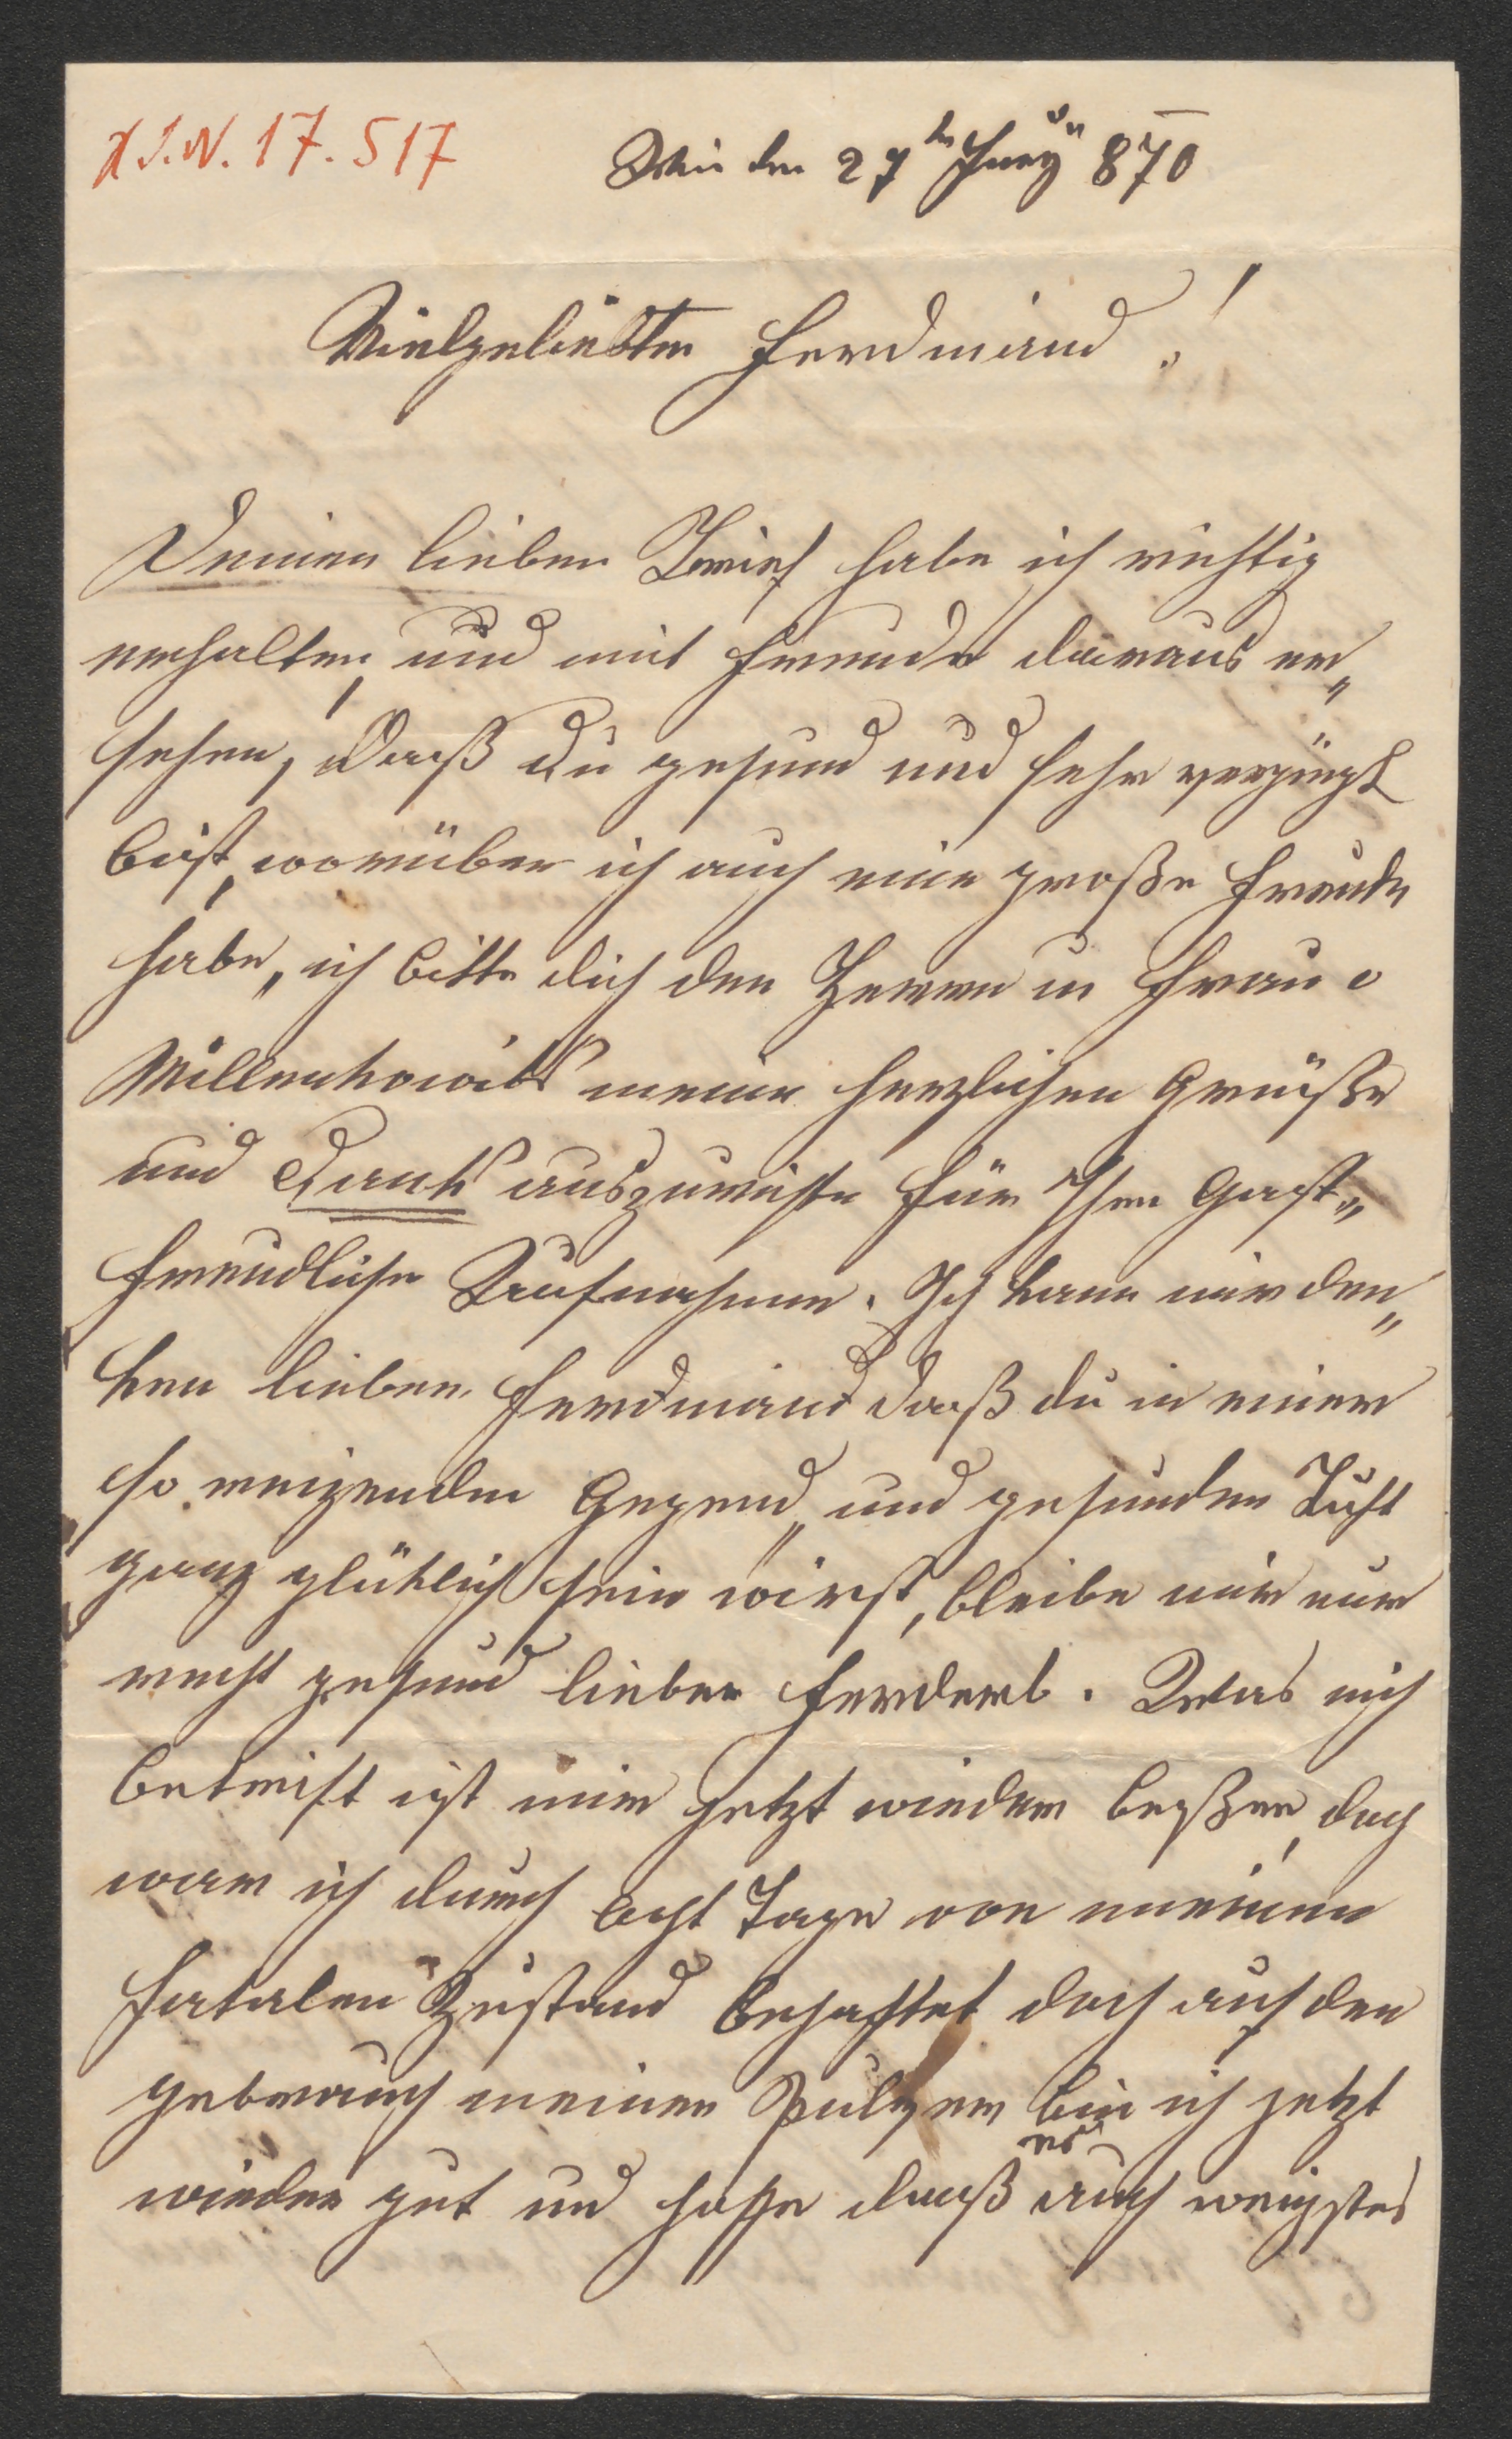 H.I.N. 17.517
Wien den 27ten Juny 870
Vielgeliebter Ferdinand!
Deinen lieben Brief habe ich richtig
erhalten, und mit Freude daraus er„
sehen, daß du gesund und sehr vergügt
bist, worüber ich auch eine große Freude
habe, ich bitte dich den Herrn u Frau v
Millenkovics meine herzlichen Grüße
und Dank auszurichten für Ihre Gast„
freundliche Aufnahme. Ich kann mir den„
ken lieber Ferdinand daß du in einer
so reizenden Gegend, und gesunden Luft
ganz glüklich sein wirst, bleibe mir nur
recht gesund lieber Ferderl. Was mich
betrift ist mir jetzt wieder beßer, doch
war ich durch acht Tage von meinem
fatalen Zustand behaftet doch auf den
gebrauch meiner Pulver bin ich jetzt
wieder gut und hoffe daß es auch wenigstens